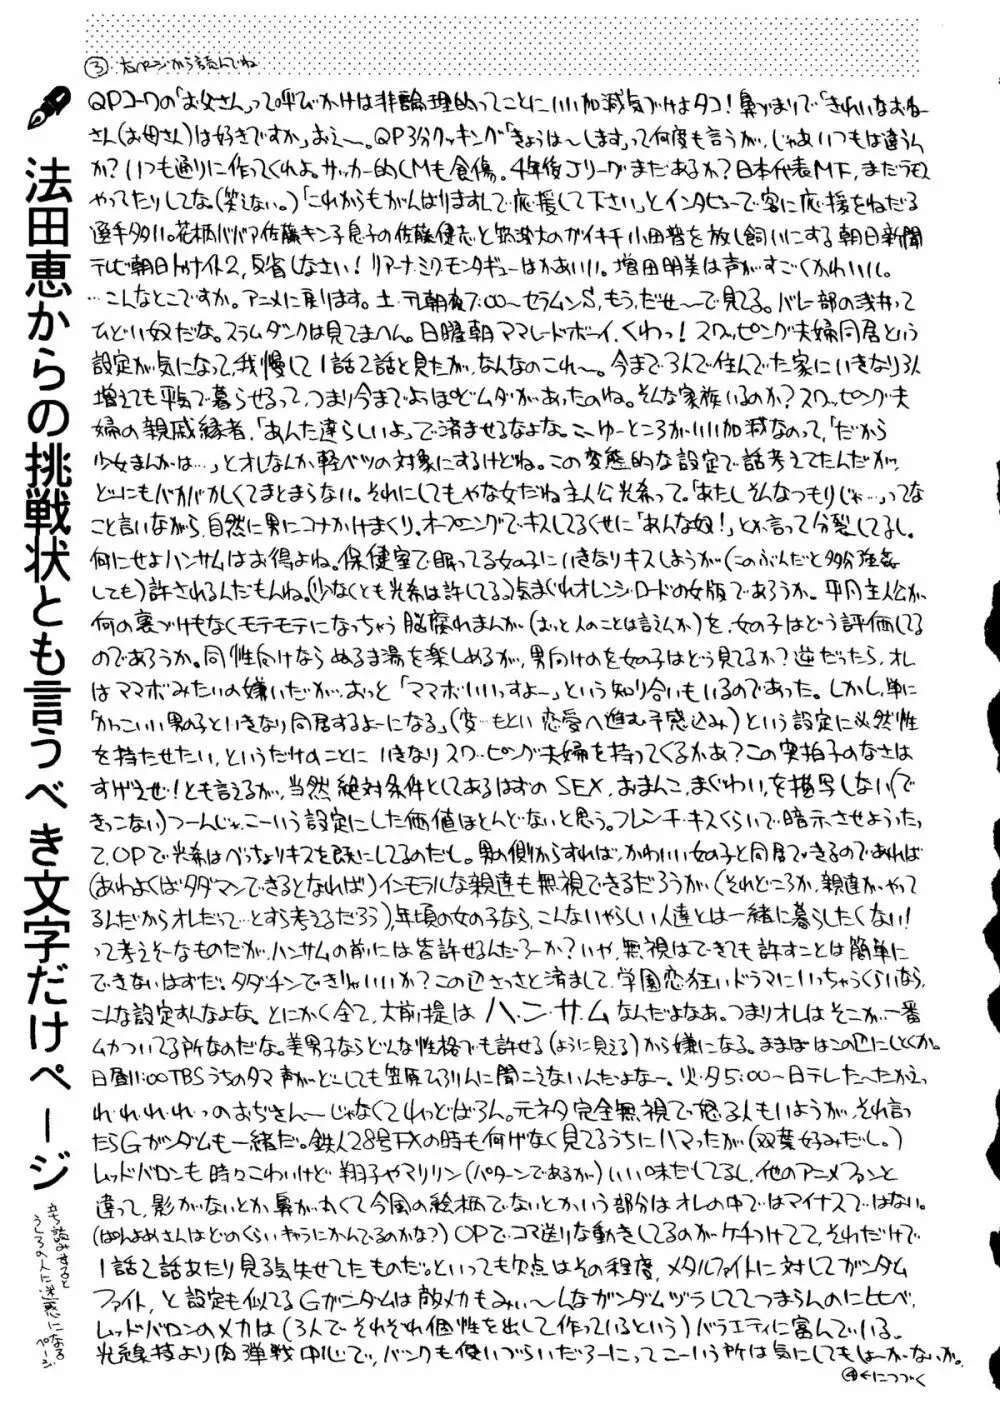 ③ 右ページから読んでね
QPコーワの「お父さん」って呼びかけは非論理的ってことにいい加減気づけよタコ!鼻づまりで「きれいなお母
さん(お母さん)は好きですか」おえ〜。QP3分クッキング「きょうは〜します」って何度も言うが、じゃあいつもは違うん
か?いつも通りに作ってくれよ。サッカー的CMも食傷。4年後Jリーグまだあるか?日本代表MF、まだラモス
やってたりしてな。(笑えない。)「これからもがんばりますんで応援して下さい」とインタビューで客に応援をねだる
選手多いし。花柄ババア佐藤キン子息子の佐藤健志と筑波大のガイキチ小田晋を放し飼いにする朝日新聞
テレビ朝日トゥナイト2,反省しなさい!リアーナ・ミク・モンタギューはかあいい。増田明美は声がすごくかわいいし。
…こんなとこですか。アニメに戻ります。土・テレ朝夜7:00〜セラムンS,もう,だせ〜で見てる。バレー部の浅井って
ひどい奴だな。スラムダンクは見てまへん。日曜朝ママレードボーイ,くわっ!スワッピング夫婦同居という
設定が気になって,我慢して1話2話と見たが,なんなのこれ〜。今まで3人で住んでた家にいきなり3人
増えても平気で暮らせるって,つまり今までよほどムダがあったのね。そんな家族いるのか?スワッピング夫
婦の親戚縁者,「あんた達らしいよ」で済ませるなよな。こーゆーところがいい加減なのって,「だから
少女まんがは…」とオレなんか軽ベツの対象にするけどね。この変態的な設定で話考えてたんだが,
どーにもバカバカしくてまとまらない。それにしてもやな女だね主人公光希って。「あたしそんなつもりじゃ…」ってな
こと言いながら,自然に男にコナかけまくり,オープニングでキスしてるくせに「あんな奴!」とか言って分裂してるし。
何にせよハンサムはお得よね。保健室で眠ってる女の子にいきなりキスしようが(このぶんだと多分強姦
しても)許されるんだもんね。(少なくとも光希は許してる)気まぐれオレンジ・ロードの女版であろうか。平凡主人公が
何の裏づけもなくモテモテになっちゃう脳腐れまんが(おっと人のことは言えんか)を,女の子はどう評価してる
のであろうか。同性向けならぬるま湯を楽しめるが,男向けのを女の子はどう見てるか?逆だったら,オレ
はママボみたいの嫌いだが,おっと「ママボいいっすよ〜」という知り合いもいるのであった。しかし,単に
「かっこいい男の子といきなり同居するよーになる」,(変…もとい恋愛へ進む予感込み)という設定に必然性
を持たせたい,というだけのことにいきなりスワッピング夫婦を持ってくるかあ?この突拍子のなさは
すげえぜ!とも言えるが,当然絶対条件としてあるはずのSEX,おまんこ,まぐわい,を描写しない(で
きっこない)つーんじゃ,こーいう設定にした価値ほとんどないと思う。フレンチ・キスくらいで暗示させようたっ
て,OPで光希はべっちょりキスを既にしてるのだし。男の側からすれば,かわいい女の子と同居できるのであれば
(あわよくばタダマンできるとなれば)インモラルな親達も無視できるだろうが,(それどころか,親達がやって
るんだからオレだって…とすら考えるだろう)年頃の女の子なら,こんないやらしい人達とは一緒に暮らしたくない!
って考えそーなものだが,ハンサムの前には皆許せるんだろーか?いや,無視はできても許すことは簡単に
できないはずだ。タダチンできりゃいいか?この辺さっさと済まして,学園恋狂いドラマにいっちゃうくらいなら,
こんな設定すんなよな。とにかく全て,大前提はハ,ン,サ,ムなんだよなあ。つまりオレはそこが一番
ムカついてる所なのだな。美男子ならどんな性格でも許せる(ように見える)から嫌になる。ままぼはこの辺にしとくか。
日曜11:00TBSうちのタマ声がどーしても笠原ひろ子に聞こえないんだよなー。火・夕5:00〜日テレた〜たかえっ
れ,れ,れ,れっのおぢさん〜じゃなくてれっどばろん。元ネタ完全無視で怒る人もいようが,それ言っ
たらGガンダムも一緒だ。鉄人28号FXの時も何げなく見てるうちにハマったが(双葉好みだし。)
レッドバロンも時々こわいけど翔子やマリリン(パターンであるが)いい味だしてるし,他のアニメファンと
違って,影がないとか,鼻が丸くて今風の絵柄でないとかいう部分はオレの中ではマイナスではない。
(ぱんよめさんはどのくらいキャラにかんでるのかな?)OPでコマ送りな動きしてるのがケチつけてて,それだけで
1話2話あたり見る気失せてたものだ。といっても欠点はその程度,メタルファイトに対してガンダム
ファイト,と設定も似てるGガンダムは敵メカもみぃ〜んなガンダムヅラしててつまらんのに比べ,
レッドバロンのメカは(3人でそれぞれ個性を出して作っているという)バラエティに富んでいる。
光線技より肉弾戦中心で,バンクも使いづらいだろーにってこーいう所は気にしてもしょーがないか。
④へつづく
法田恵からの挑戦状とも言うべき文字だけページ
立ち読みすると
うしろの人に迷惑になる
ページ